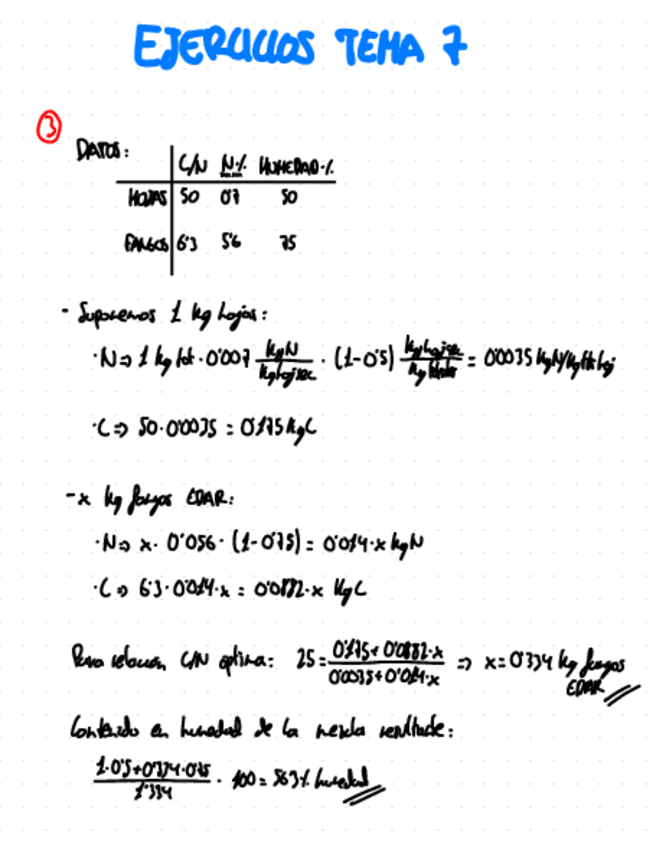 EJERCICIOS TEMA 7
③
DATOS:
C/N N% HUMEDAD %
HOJAS 50 0'7 50
FANGOS 6'3 5'6 75
- Suponemos 1 kg hojas:
· N ⇒ 1 kg tot · 0'007 kgN/kg hoj sec · (1-0'5) kg hoj sec/kg totales = 0'0035 kgN/kg tot hoj
· C ⇒ 50 · 0'0035 = 0'175 kg C
- x kg fangos EDAR:
· N ⇒ x · 0'056 · (1-0'75) = 0'014 · x kg N
· C ⇒ 6'3 · 0'014 · x = 0'0882 · x kg C
Para relación C/N óptima: 25 = (0'175 + 0'0882 · x)/(0'0035 + 0'014 · x) ⇒ x = 0'334 kg fangos
EDAR
Contenido en humedad de la mezcla resultante:
(1 · 0'5 + 0'334 · 0'75)/1'334 · 100 = 56'3 % humedad